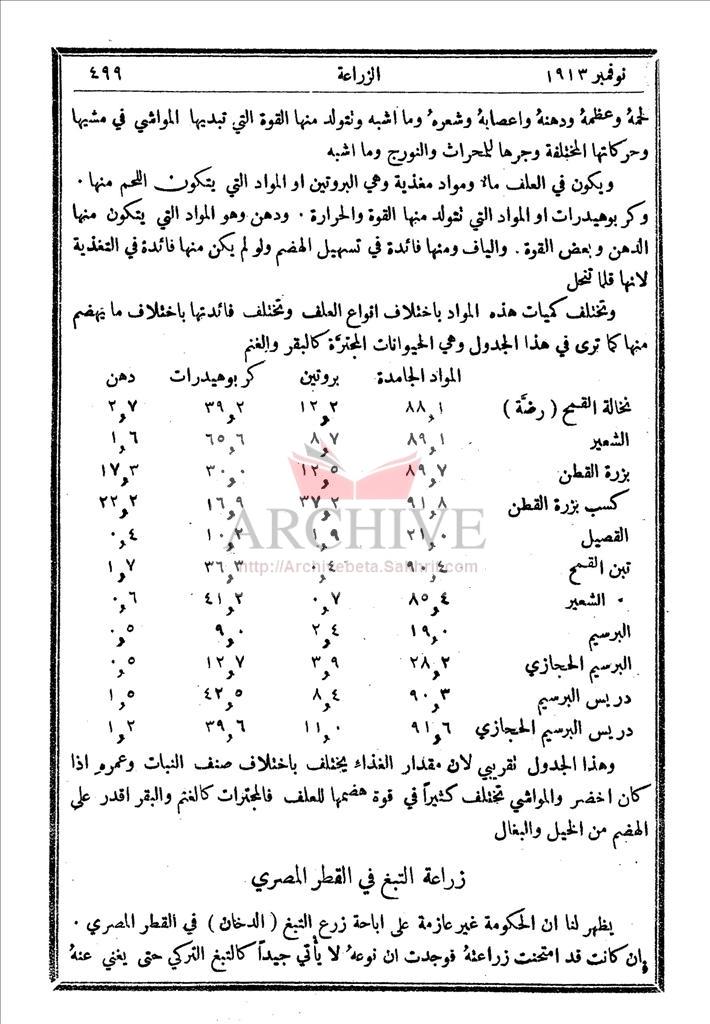 نوفمبر ١٩١٣ الزراعة ٤٩٩
لحمهُ وعظمهُ ودهنهُ واعصابهُ وشعرهُ وما اشبه وتتولد منها القوة التي تبديها المواشي في مشيها
وحركاتها المختلفة وجرها للمحراث والنورج وما اشبه
ويكون في العلف مالا ومواد مغذية وهي البروتين او المواد التي يتكون اللحم منها ·
وكربوهيدرات او المواد التي تتولد منها القوة والحرارة · ودهن وهو المواد التي يتكون منها
الدهن وبعض القوة . والياف ومنها فائدة في تسهيل الهضم ولو لم يكن منها فائدة في التغذية
لانها قلما تنحل
وتختلف كميات هذه المواد باختلاف انواع العلف وتختلف فائدتها باختلاف ما ينهضم
منها كما ترى في هذا الجدول وهي الحيوانات المجترَّة كالبقر والغنم
المواد الجامدة بروتين كربوهيدرات دهن
نخالة القمح (رضَّة) ٨٨,١ ١٢,٢ ٣٩,٢ ٢,٧
الشعير ٨٩,١ ٨,٧ ٦٥,٦ ١,٦
بزرة القطن ٨٩,٧ ١٢,٥ ٣٠,٠ ١٧,٣
كسب بزرة القطن ٩١,٨ ٣٧,٢ ١٦,٩ ٢٢,٢
الفصيل ٢١,٠ ١,٩ ١٠,٢ ٠,٤
تبن القمح ٩٠,٤ ٠,٤ ٣٦,٣ ١,٧
· الشعير ٨٥,٤ ٠,٧ ٤١,٢ ٠,٦
البرسيم ١٩,٠ ٢,٤ ٩,٠ ٠,٥
البرسيم الحجازي ٢٨,٢ ٣,٩ ١٢,٧ ٠,٥
دريس البرسيم ٩٠,٣ ٨,٤ ٤٢,٥ ١,٥
دريس البرسيم الحجازي ٩١,٦ ١١,٠ ٣٩,٦ ١,٢
وهذا الجدول تقريبي لان مقدار الغذاء يختلف باختلاف صنف النبات وعمره اذا
كان اخضر والمواشي تختلف كثيراً في قوة هضمها للعلف فالمجترات كالغنم والبقر اقدر على
الهضم من الخيل والبغال
زراعة التبغ في القطر المصري
يظهر لنا ان الحكومة غير عازمة على اباحة زرع التبغ (الدخان) في القطر المصري ·
وان كانت قد امتحنت زراعتهُ فوجدت ان نوعهُ لا يأتي جيداً كالتبغ التركي حتى يغني عنهُ
ARCHIVE
http://Archivebeta.Sakhrit.com